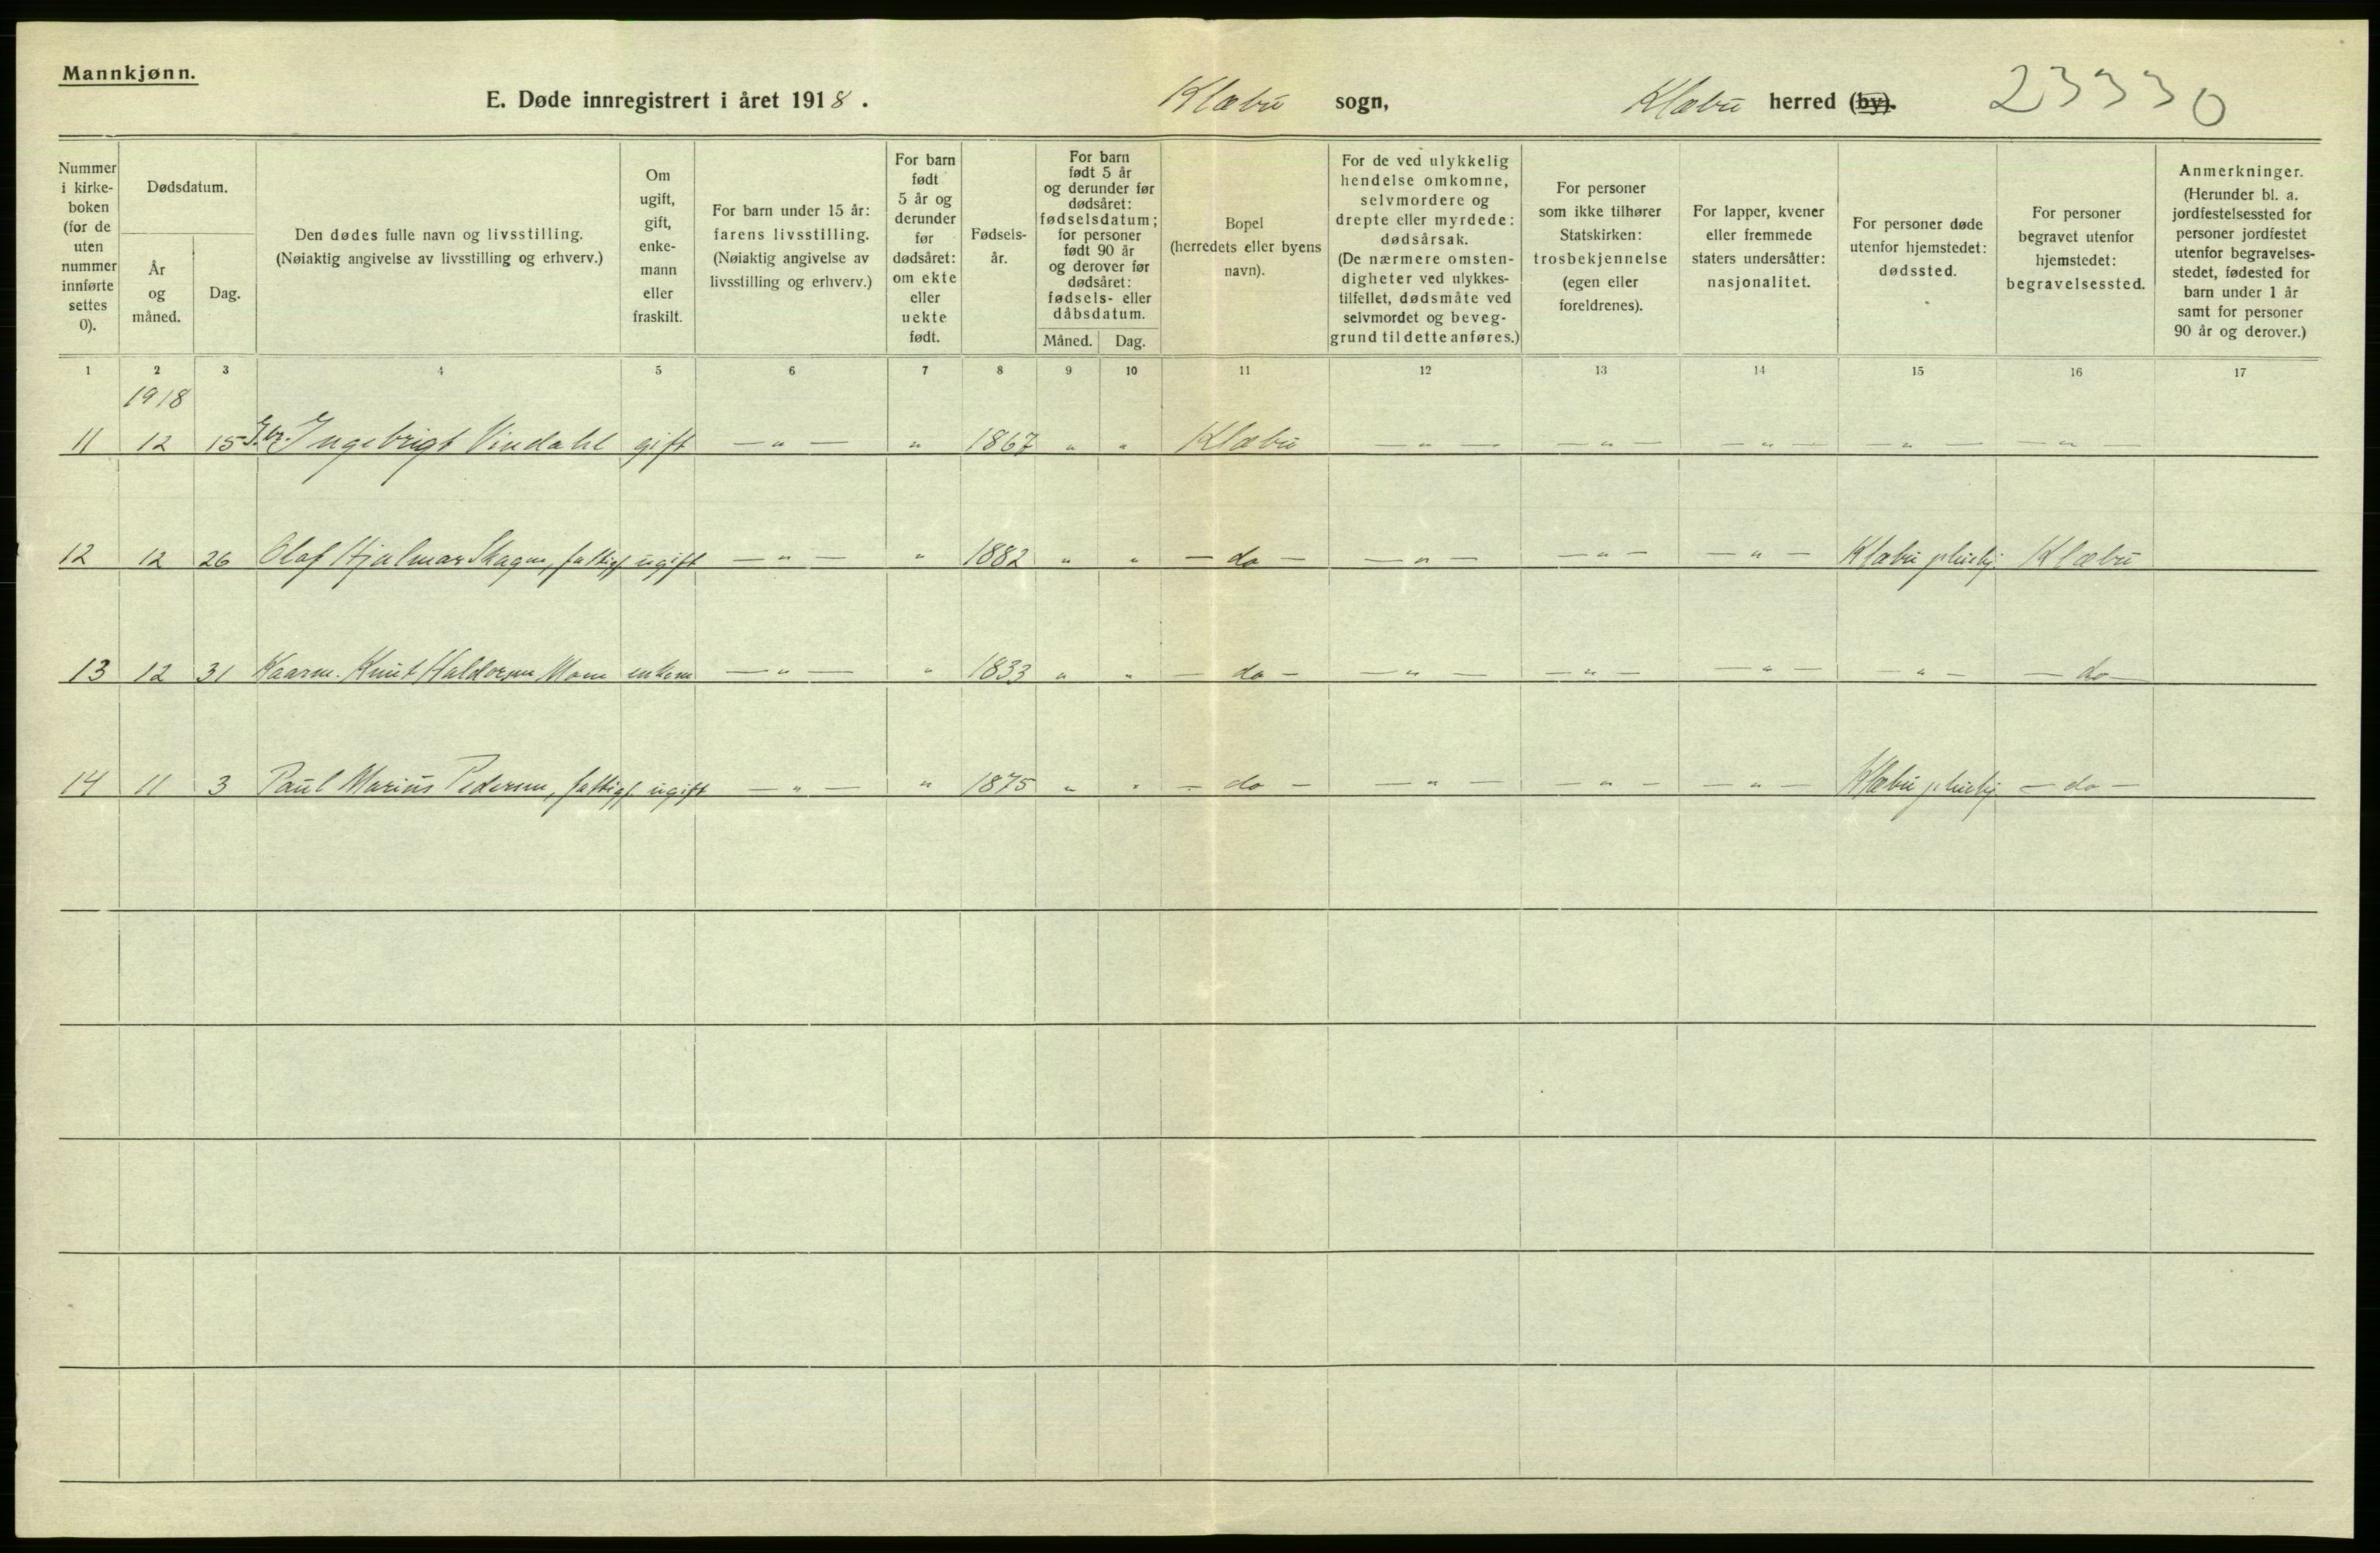 Mannkjønn.
E. Døde innregistrert i året 1918. Klæbu sogn, Klæbu herred (by). 23330
Nummer i kirke- boken (for de uten nummer innførte settes 0).
Dødsdatum.
År og måned.
Dag.
Den dødes fulle navn og livsstilling.
(Nøiaktig angivelse av livsstilling og erhverv.)
Om ugift, gift, enke- mann eller fraskilt.
For barn under 15 år: farens livsstilling. (Nøiaktig angivelse av livsstilling og erhverv.)
For barn født 5 år og derunder før dødsåret: om ekte eller uekte født.
Fødsels- år.
For barn født 5 år og derunder før dødsåret: fødselsdatum; for personer født 90 år og derover før dødsåret: fødsels- eller dåbsdatum.
Måned. Dag.
Bopel (herredets eller byens navn).
For de ved ulykkelig hendelse omkomne, selvmordere og drepte eller myrdede: dødsårsak. (De nærmere omsten- digheter ved ulykkes- tilfellet, dødsmåte ved selvmordet og beveg- grund til dette anføres.)
For personer som ikke tilhører Statskirken: trosbekjennelse (egen eller foreldrenes).
For lapper, kvener eller fremmede staters undersåtter: nasjonalitet.
For personer døde utenfor hjemstedet: dødssted.
For personer begravet utenfor hjemstedet: begravelsessted.
Anmerkninger. (Herunder bl. a. jordfestelsessted for personer jordfestet utenfor begravelses- stedet, fødested for barn under 1 år samt for personer 90 år og derover.)
1 2 3 4 5 6 7 8 9 10 11 12 13 14 15 16 17
1918
11 12 15 Gbr. Ingebrigt Vindahl gift — " — " 1867 " " Klæbu — " — — " — — " — — " — — " —
12 12 26 Olaf Hjalmar Skagen, fattigl ugift — " — " 1882 " " — do — — " — — " — — " — Klæbu pleiehj. Klæbu
13 12 31 Kaarm. Knut Haldorsen Moen enkem — " — " 1833 " " — do — — " — — " — — " — — " — — do —
14 11 3 Paul Marius Pedersen, fattigl. ugift — " — " 1875 " " — do — — " — — " — — " — Klæbu pleiehj. — do —